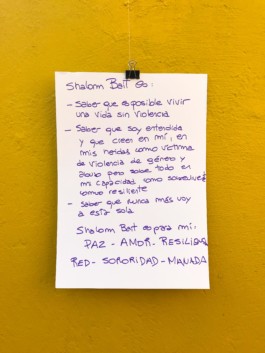 Shalom Bait es:
- Saber que es posible vivir
una vida sin violencia
- Saber que soy entendida
y que creen en mi, en
mis heridas como víctima
de violencia de género y
abuso pero sobre todo en
mi capacidad como
como resiliente
- Saber que nunca más voy
a estar sola.
Shalom Bait es para mi:
PAZ - AMOR - RESILIENCIA
RED - SORORIDAD - MANADA